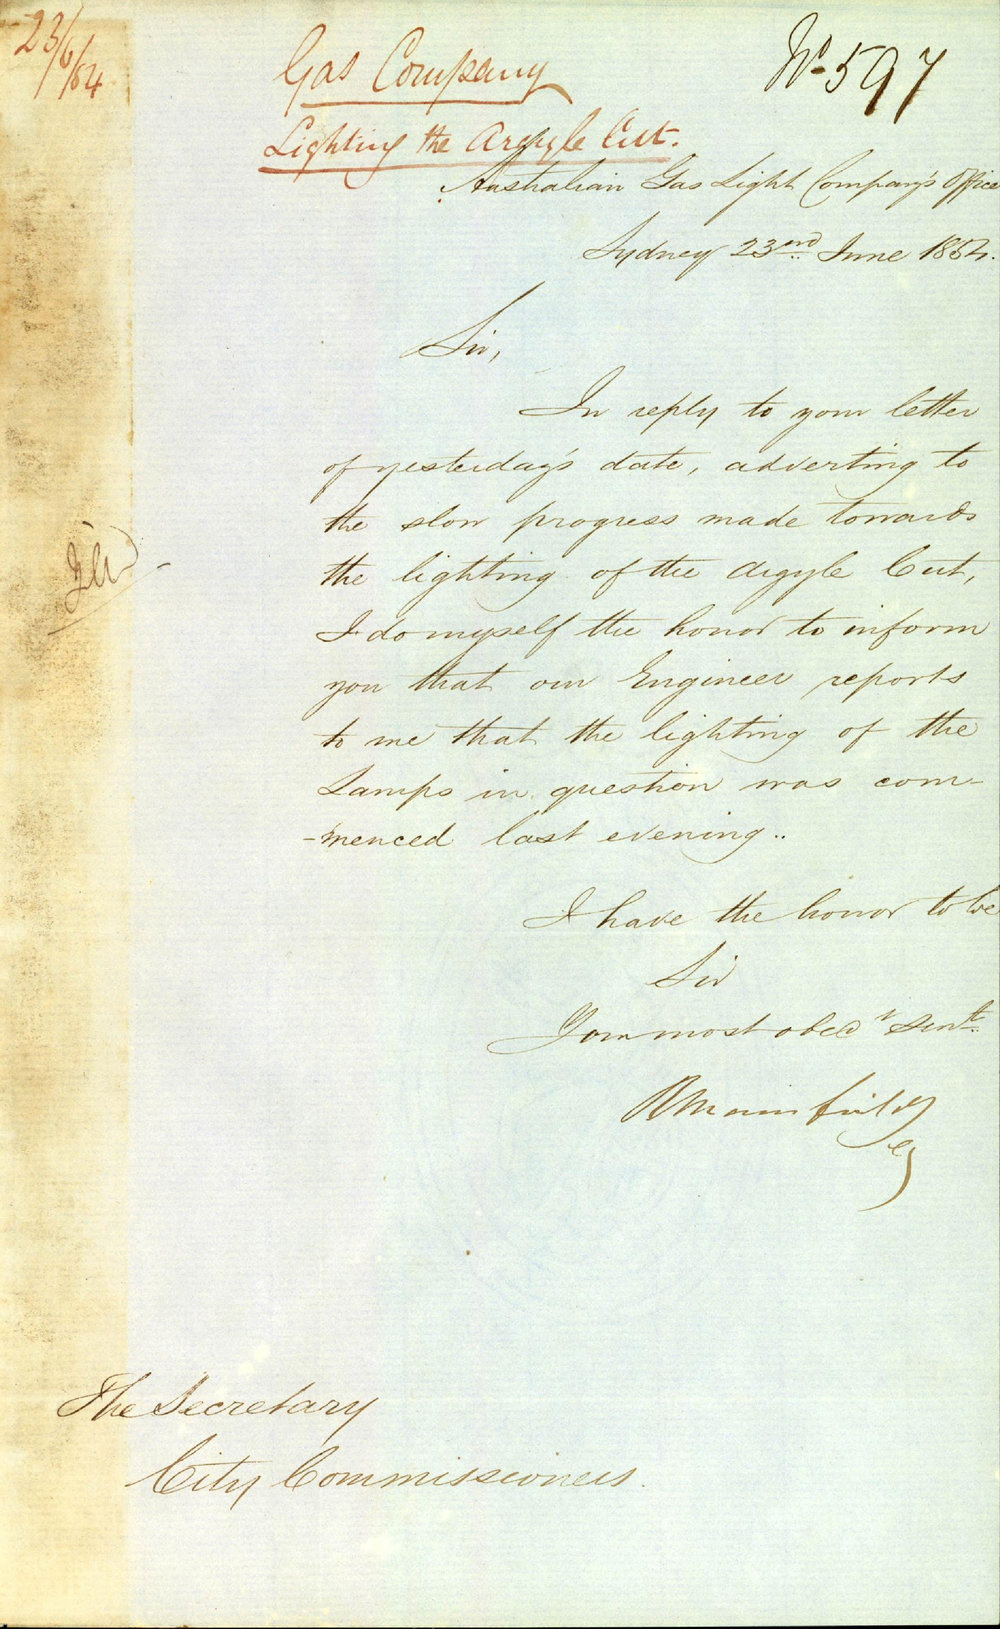 23/6/54
Gas Company
No 597
Lighting the Argyle Cut.
Australian Gas Light Company's Office
Sydney 23rd June 1854.
Sir,
In reply to your letter
of yesterday's date, adverting to
the slow progress made towards
the lighting of the Argyle Cut,
I do myself the honor to inform
you that our Engineer reports
to me that the lighting of the
Lamps in question was com-
-menced last evening..
I have the honor to be
Sir
Your most obedt Servt.
R Mansfield
Sey
The Secretary
City Commissioners.